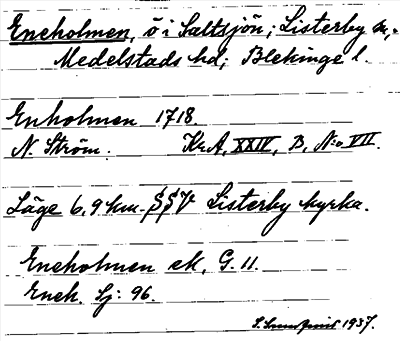 Eneholmen, ö i Saltsjön; Listerby sn,
Medelstads hd; Blekinge l.
Enholmen 1718.
N. Ström. Kr. A. XXIV, B, N:o VII.
Läge 6,9 km. SSV Listerby kyrka.
Eneholmen ek. G. 11.
Eneh. Sj: 96.
S. Sundquist 1937.